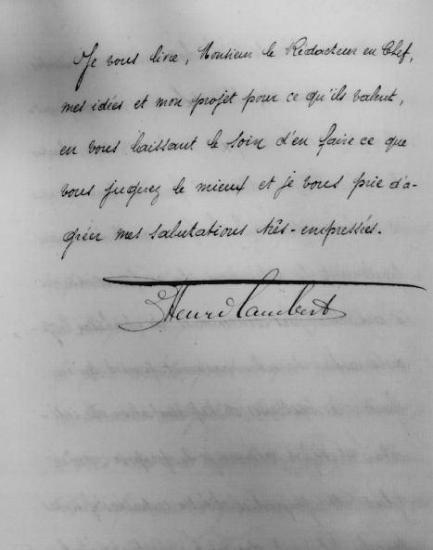 Je vous livre, Monsieur le Rédacteur en Chef,
mes idées et mon projet pour ce qu'ils valent,
en vous laissant le soin d'en faire ce que
vous jugez le mieux et je vous prie d'a-
gréer mes salutations très-empressées.
Henri Lambert